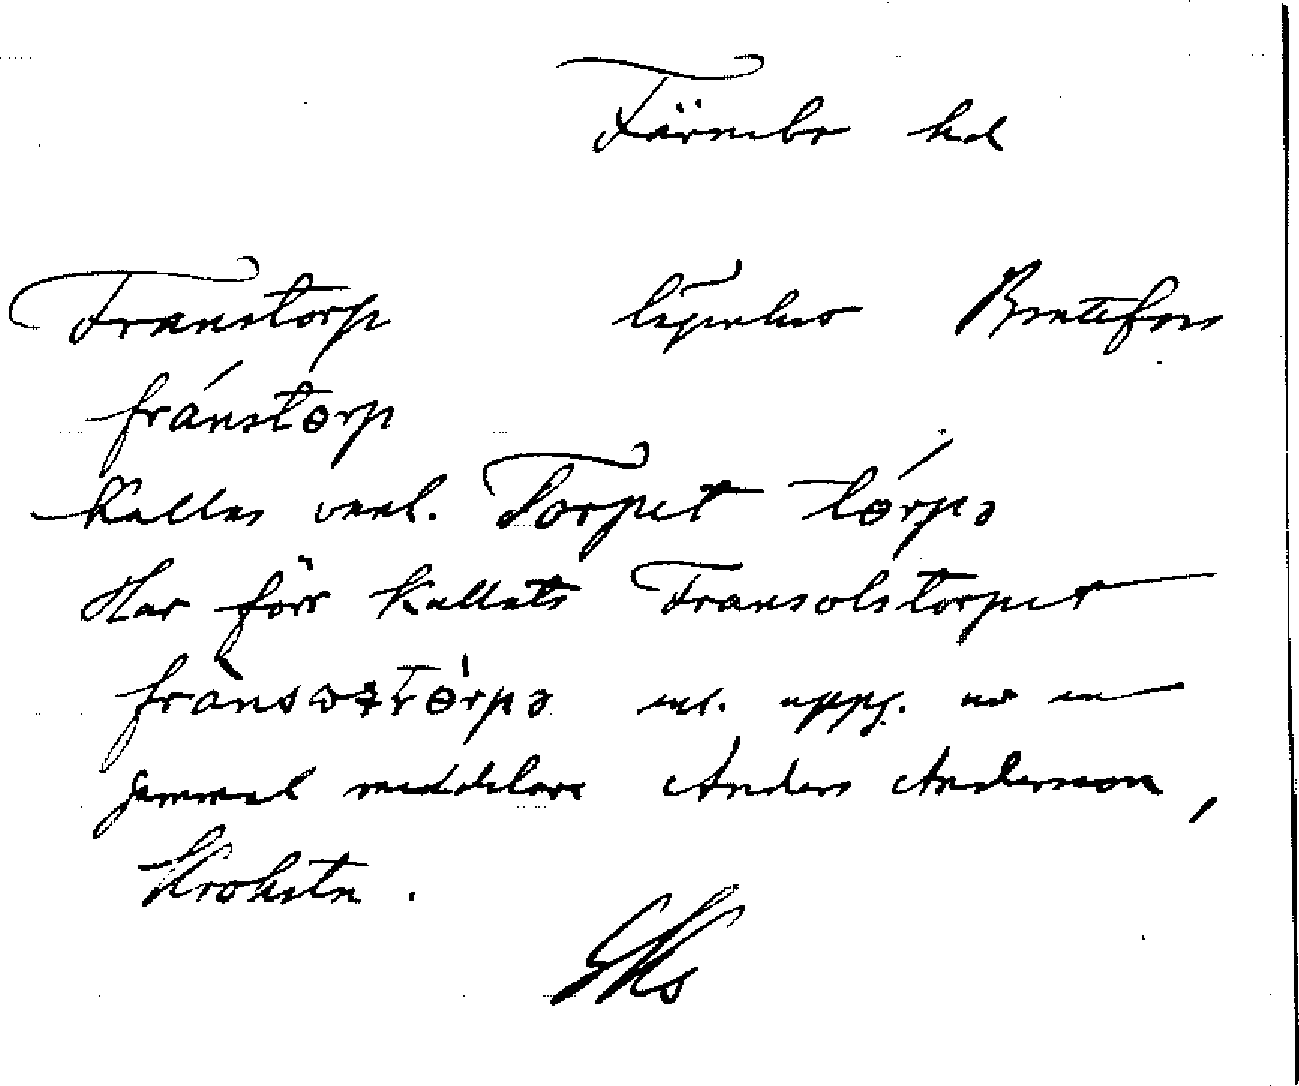 Färnebo hd
Franstorp lägenhet Brattfors
fránstorp
Kallas vanl. Torpet tórpə
Har förr kallats Fransolstorpet
frànswtórpə enl. uppg. av en
gammal meddelare Anders Andersson,
Krokstn.